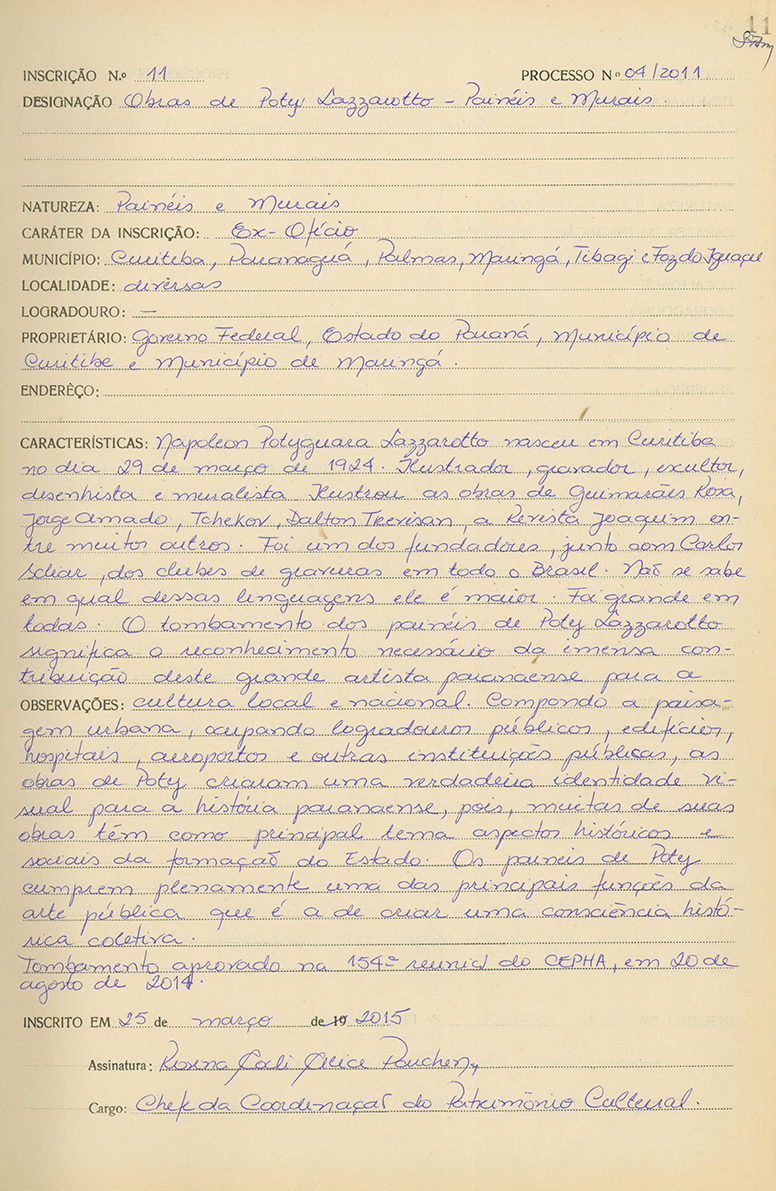 11
INSCRIÇÃO N.º 11 PROCESSO Nº 04/2011
DESIGNAÇÃO Obras de Poty Lazzarotto - Painéis e Murais.
NATUREZA: Painéis e Murais
CARÁTER DA INSCRIÇÃO: Ex-Ofício
MUNICÍPIO: Curitiba, Paranaguá, Palmas, Maringá, Tibagi e Foz do Iguaçu
LOCALIDADE: diversas
LOGRADOURO: —
PROPRIETÁRIO: Governo Federal, Estado do Paraná, Município de
Curitiba e Município de Maringá.
ENDERÊÇO:
CARACTERÍSTICAS: Napoleon Potyguara Lazzarotto nasceu em Curitiba
no dia 29 de março de 1924. Ilustrador, gravador, escultor,
desenhista e muralista Ilustrou as obras de Guimarães Rosa,
Jorge Amado, Tchekov, Dalton Trevisan, a Revista Joaquim en-
tre muitos outros. Foi um dos fundadores, junto com Carlos
Scliar, dos clubes de gravuras em todo o Brasil. Não se sabe
em qual dessas linguagens ele é maior. Foi grande em
todas. O tombamento dos painéis de Poty Lazzarotto
significa o reconhecimento necessário da imensa con-
tribuição deste grande artista paranaense para a
OBSERVAÇÕES: cultura local e nacional. Compondo a paisa-
gem urbana, ocupando logradouros públicos, edifícios,
hospitais, aeroportos e outras instituições públicas, as
obras de Poty criaram uma verdadeira identidade vi-
sual para a história paranaense, pois, muitas de suas
obras têm como principal tema aspectos históricos e
sociais da formação do Estado. Os painéis de Poty
cumprem plenamente uma das principais funções da
arte pública que é a de criar uma consciência histó-
rica coletiva.
Tombamento aprovado na 154ª reunião do CEPHA, em 20 de
agosto de 2014.
INSCRITO EM 25 de março de 19 2015
Assinatura: Rosina
Cargo: Chefe da Coordenação do Patrimônio Cultural.